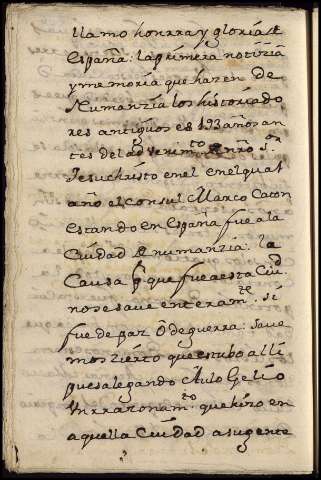 llamo honrra y gloria de
España: la primera notizia
y memoria que hazen de
Numanzia los historiado
res antiguos es 193 años an
tes del advenimto de nro Sor
Jesuchristo en el en el qual
año el consul Marco Caton
estando en España fue a la
Ciudad de numanzia: la
Causa pr que fue a esta Ciud
no se save enteramte. si
fue de paz ô de guerra: save
mos zierto que estubo alli
pues alegando Aulo Gelio
Un rrazonamto que hizo en
aquella Ciudad a su gente